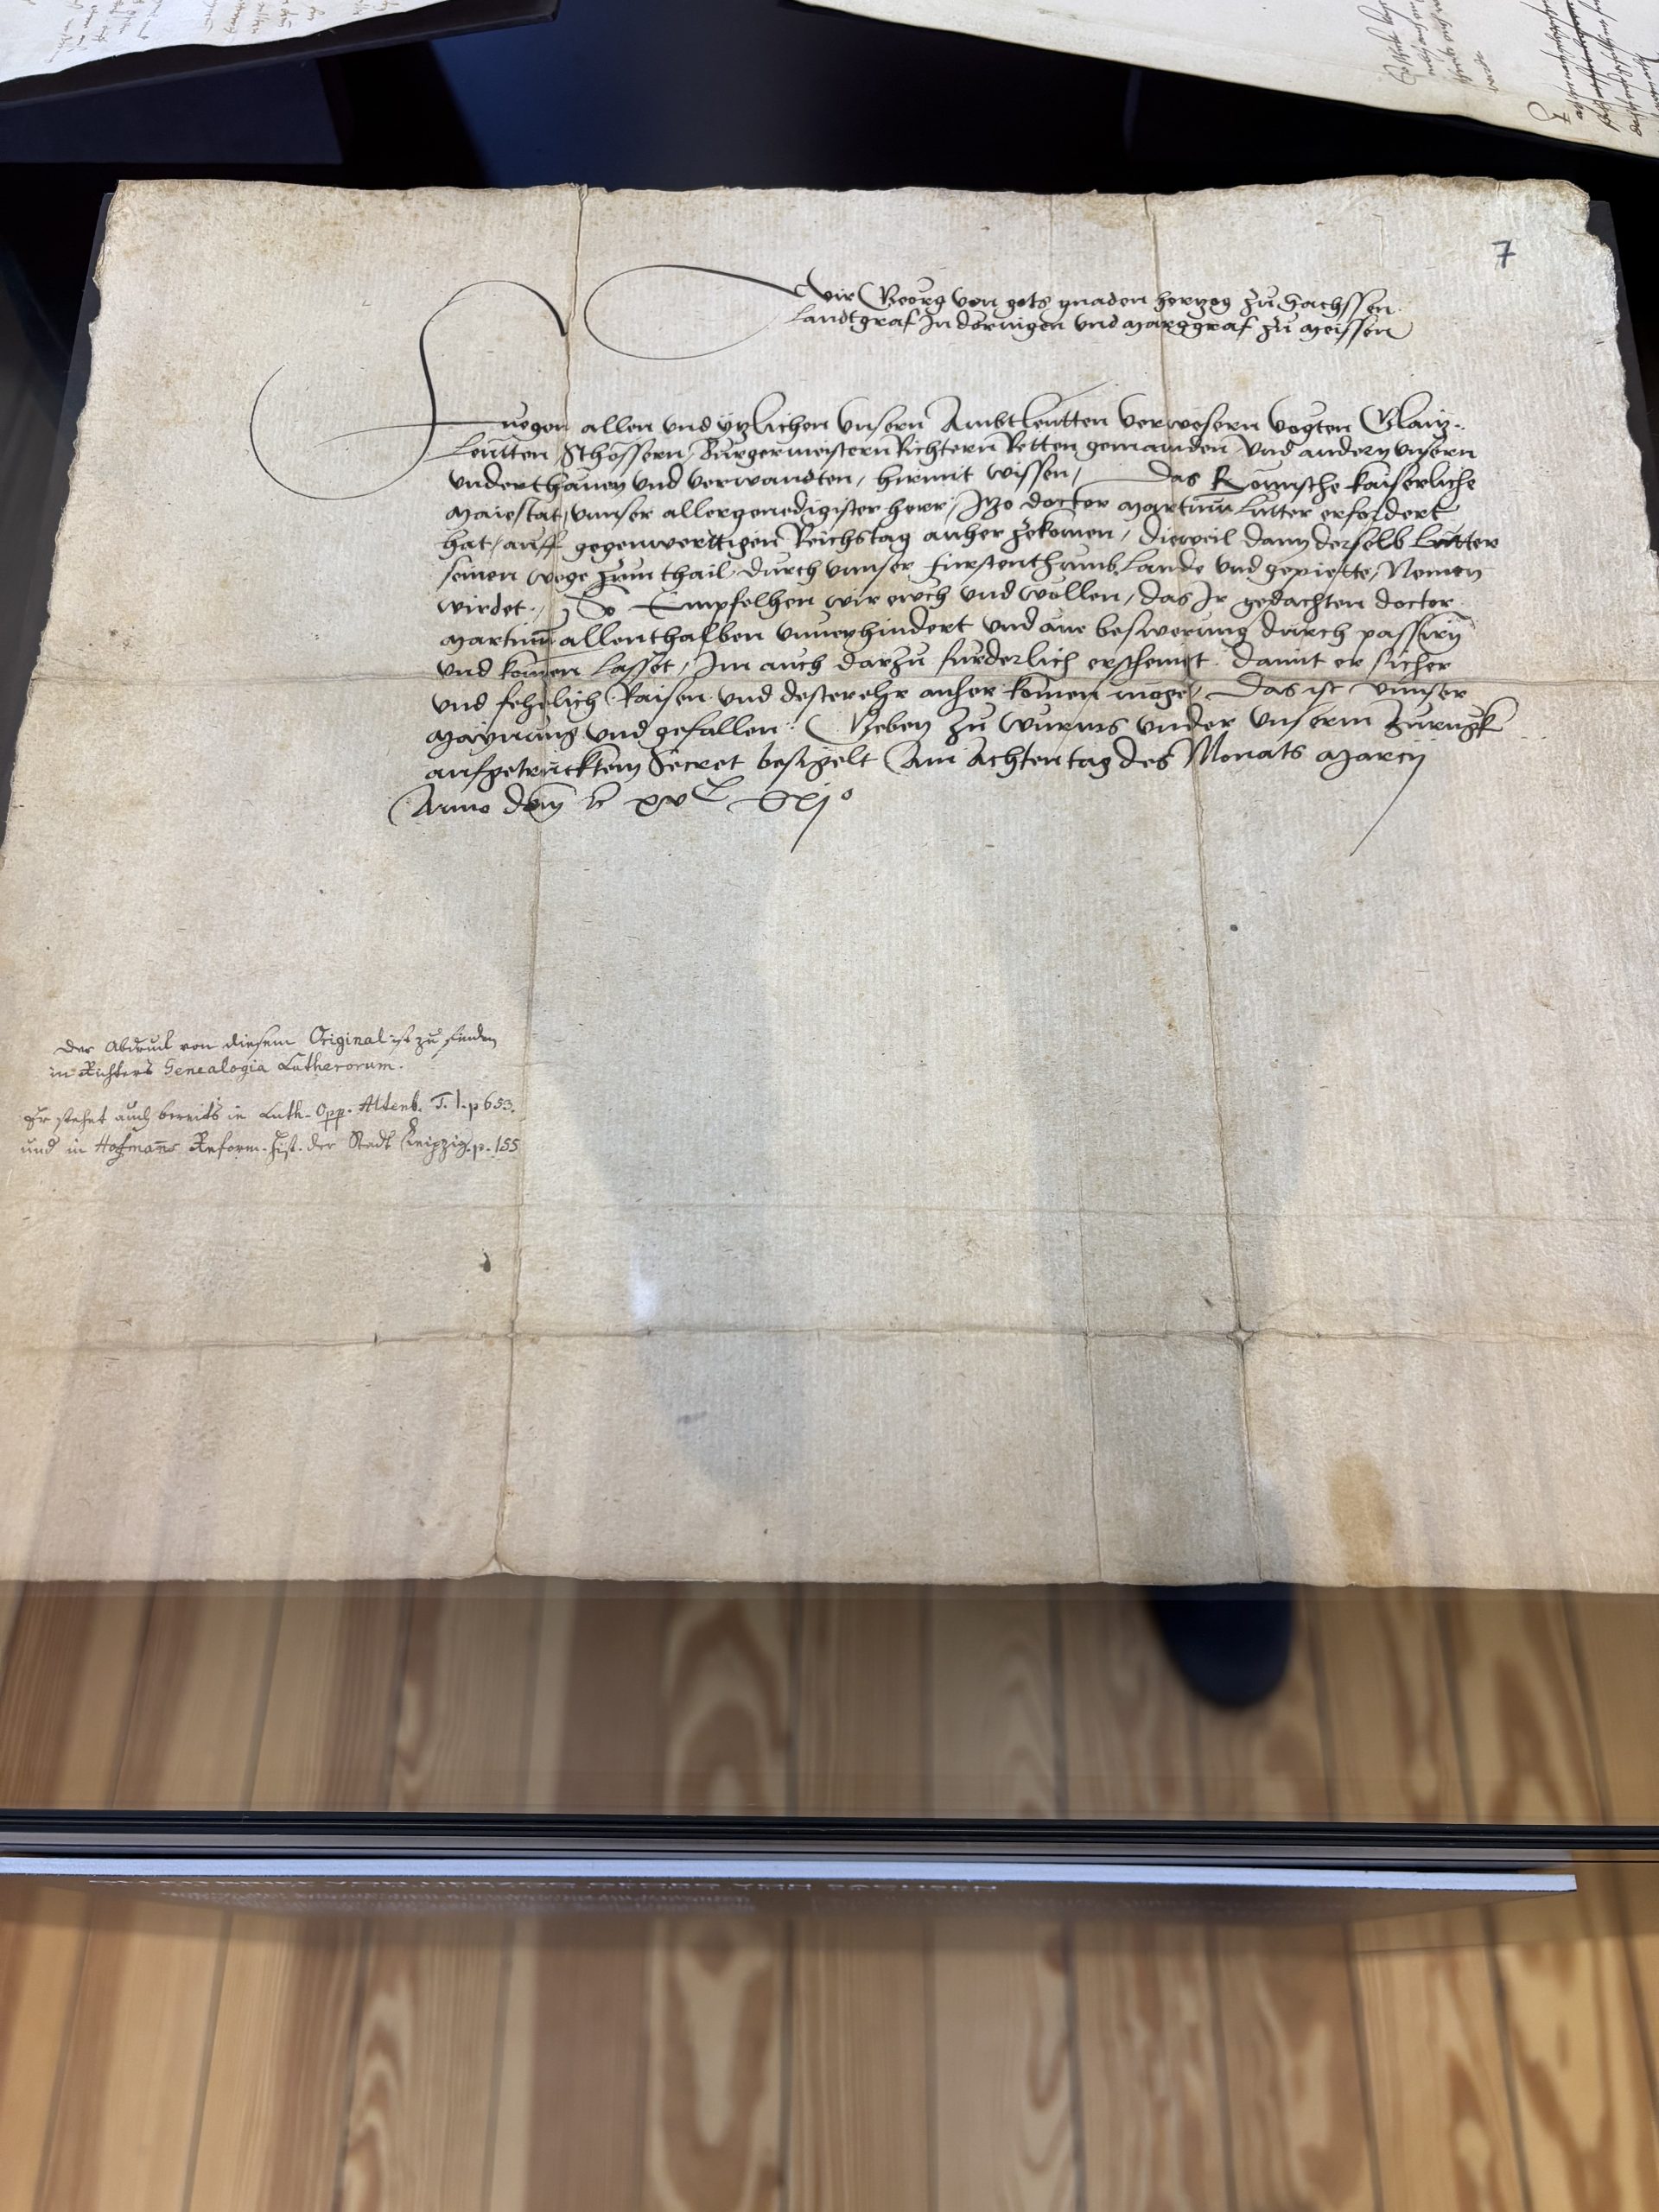 7
Wir Georg von gots gnaden hertzog zu Sachssen
Landtgraf In dörringen und Marggraf zu Meissen
Fuegen allen und ytzlichen unsern Ambtleutten verwesern vogten Glaitz-
Leutten Schössern Burgermeistern Richtern Retten gemainden und andern unsern
underthanen und verwandten, hirmit wissen, Das Römische kaiserliche
Maiestat, unnser allergenedigister herr, Itzo doctor Martinū Lutter erfordert
hat, auff gegenwerttigen Reichstag anher zekomen, dieweil dann derselb Lutter
seinen wege zum thail durch unnser furstenthumb Lande und gepiette, Nemen
wirdet, So Empfelhen wir euch und wöllen, das Ir gedachten doctor
Martinū allenthalben unverhindert und ane beswerung durch passirn
und komen lasset, Im auch darzu furderlich erscheinet damit er sicher
und fehelich Raisen und desterehr anher komen moge, Das ist unnser
Maynung und gefallen. Geben zu Wurms under unserm zuruggk
aufgetrucktem Secret besigelt Am Achten tag des Monats Marcy
Anno dom xv xxjº
Der Abdruck von diesem Original ist zu finden
in Richters Genealogia Lutherorum.
Er stehet auch bereits in Luth. Opp. Altenb. T. 1. p 653.
und in Hofmans Reform. Hist. der Stadt Leipzig. p. 155